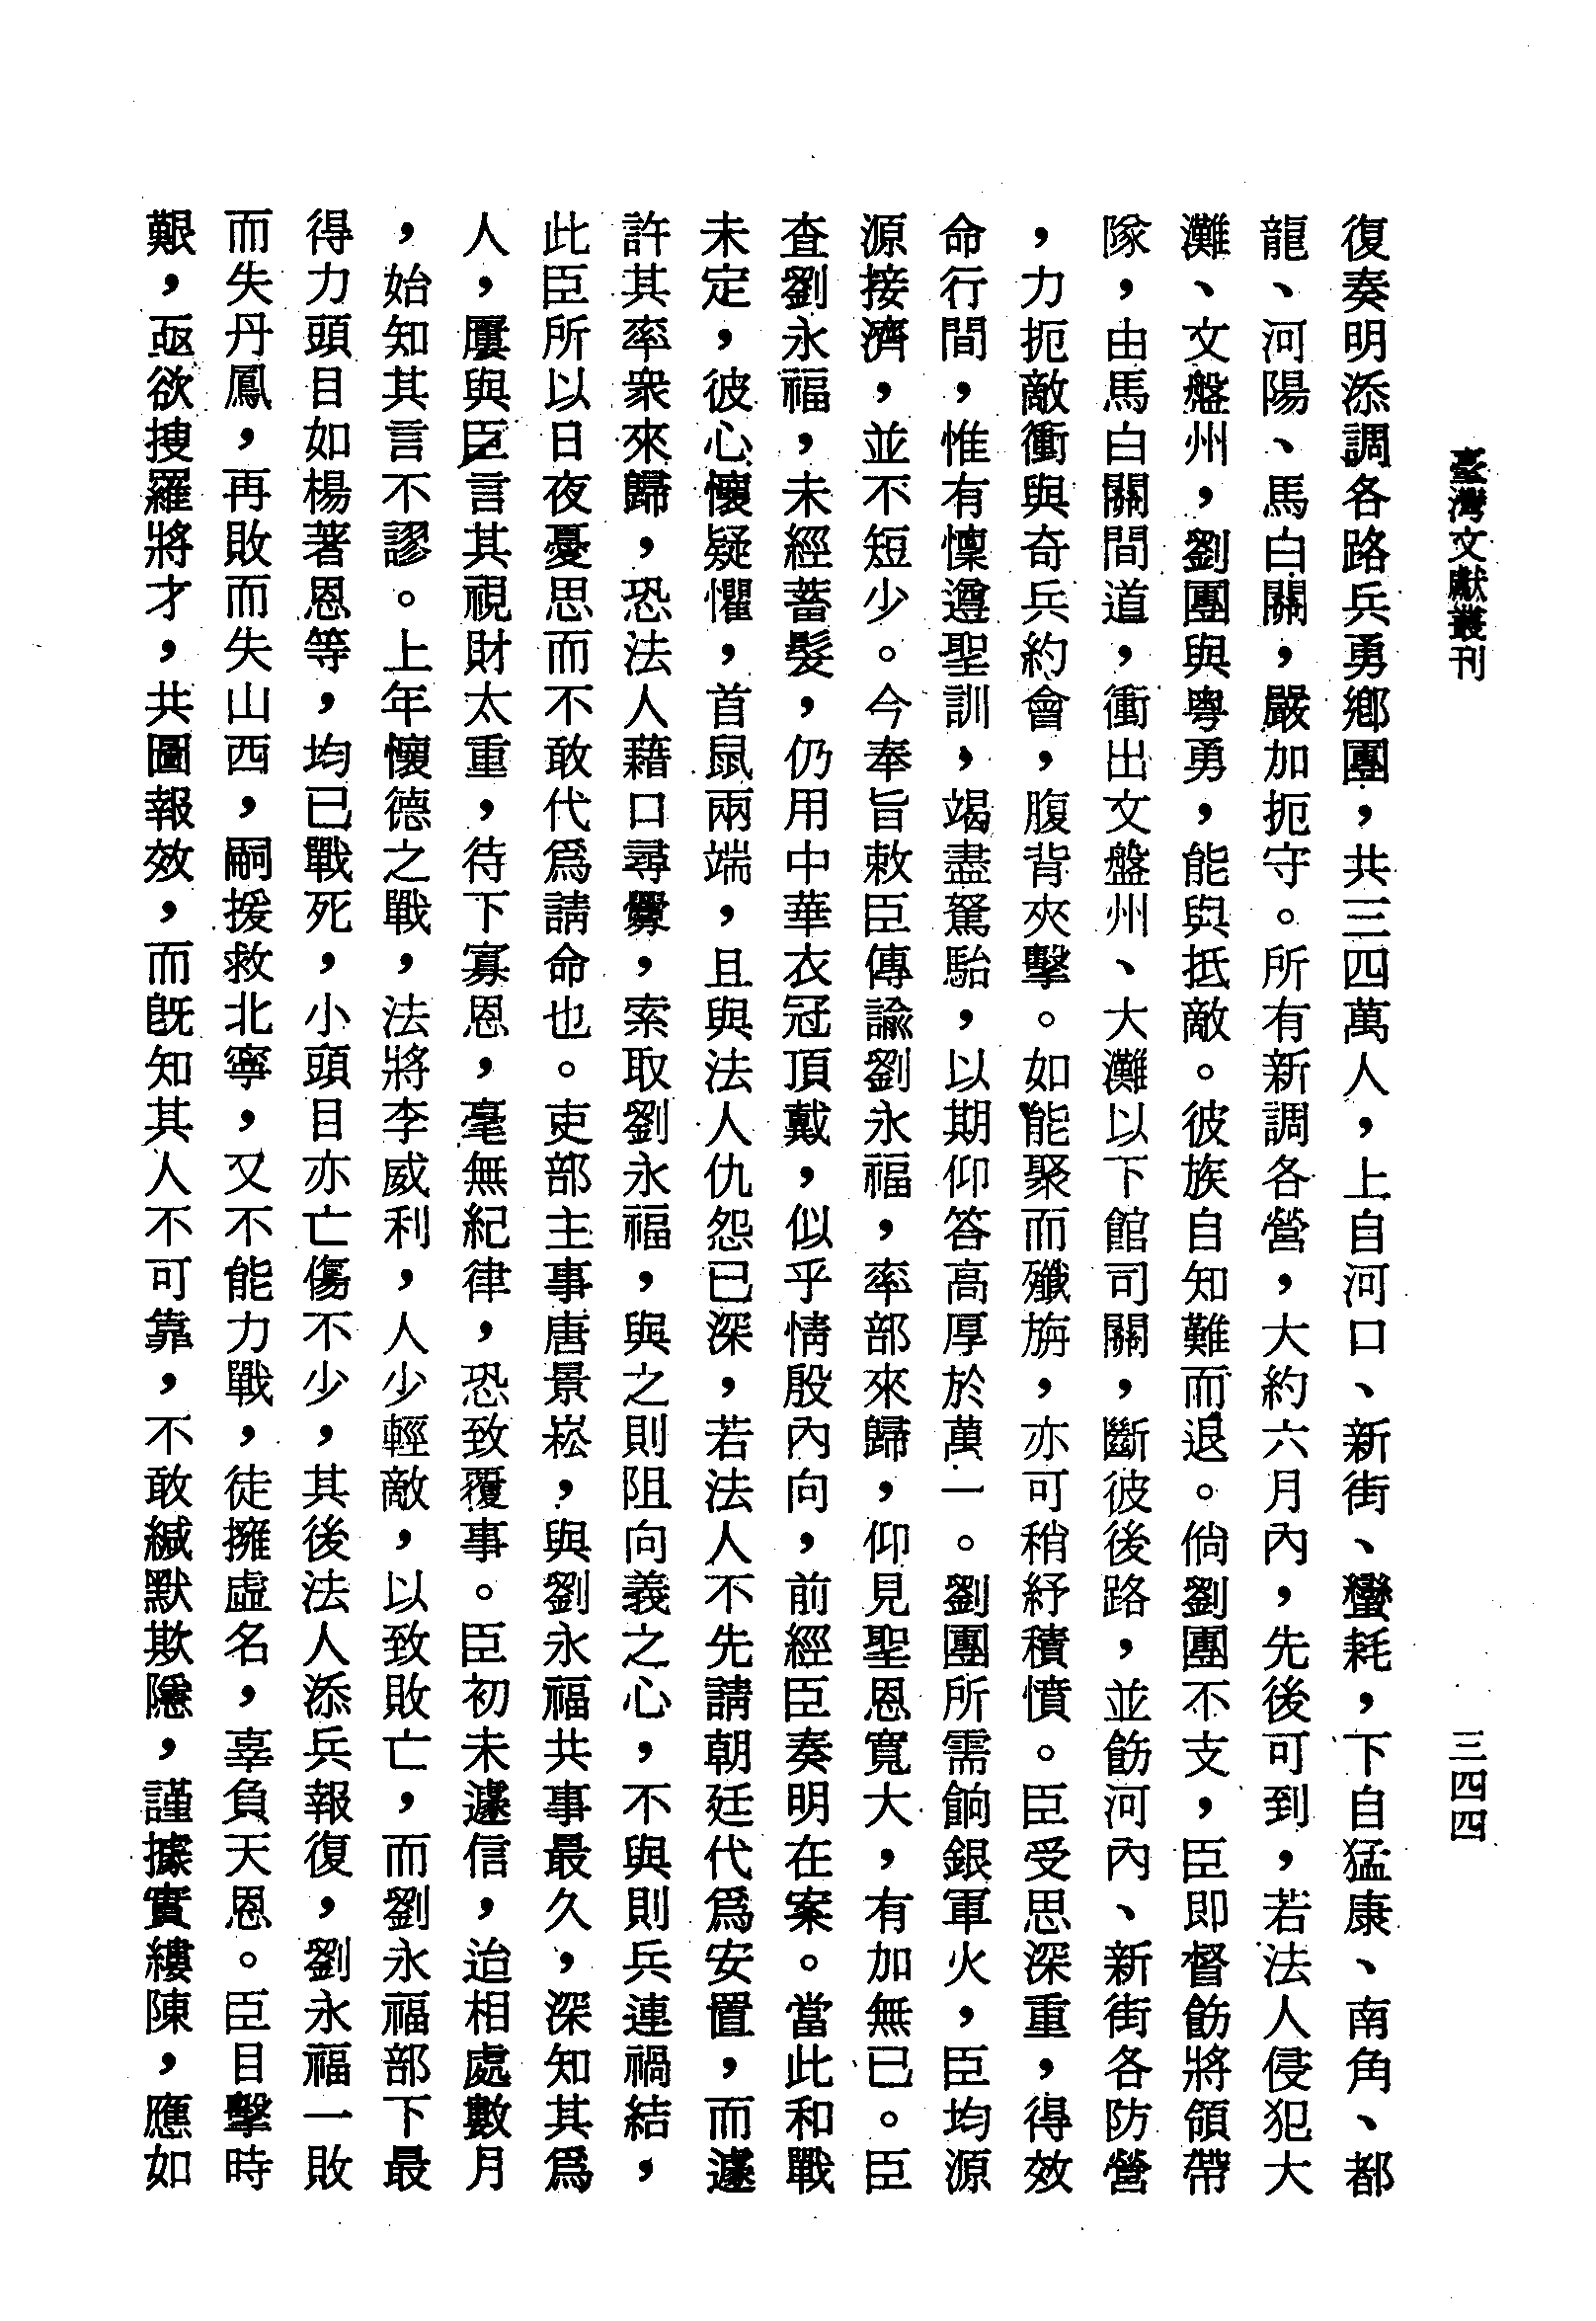 臺灣文獻叢刊
三四四
復奏明添調各路兵勇鄉團，共三四萬人，上自河口、新街、蠻耗，下自猛康、南角、都
龍、河陽、馬白關，嚴加扼守。所有新調各營，大約六月內，先後可到，若法人侵犯大
灘、文盤州，劉團與粵勇，能與抵敵。彼族自知難而退。倘劉團不支，臣即督飭將領帶
隊，由馬白關間道，衝出文盤州、大灘以下館司關，斷彼後路，並飭河內、新街各防營
，力扼敵衝與奇兵約會，腹背夾擊。如能聚而殲旃，亦可稍紓積憤。臣受恩深重，得效
命行間，惟有懍遵聖訓，竭盡駑駘，以期仰答高厚於萬一。劉團所需餉銀軍火，臣均源
源接濟，並不短少。今奉旨敕臣傳諭劉永福，率部來歸，仰見聖恩寬大，有加無已。臣
查劉永福，未經蓄髮，仍用中華衣冠頂戴，似乎情殷內向，前經臣奏明在案。當此和戰
未定，彼心懷疑懼，首鼠兩端，且與法人仇怨已深，若法人不先請朝廷代爲安置，而遽
許其率衆來歸，恐法人藉口尋釁，索取劉永福，與之則阻向義之心，不與則兵連禍結，
此臣所以日夜憂思而不敢代爲請命也。吏部主事唐景崧，與劉永福共事最久，深知其爲
人，屢與臣言其視財太重，待下寡恩，毫無紀律，恐致覆事。臣初未遽信，迨相處數月
，始知其言不謬。上年懷德之戰，法將李威利，人少輕敵，以致敗亡，而劉永福部下最
得力頭目如楊著恩等，均已戰死，小頭目亦亡傷不少，其後法人添兵報復，劉永福一敗
而失丹鳳，再敗而失山西，嗣援救北寧，又不能力戰，徒擁虛名，辜負天恩。臣目擊時
艱，亟欲搜羅將才，共圖報效，而旣知其人不可靠，不敢緘默欺隱，謹據實縷陳，應如